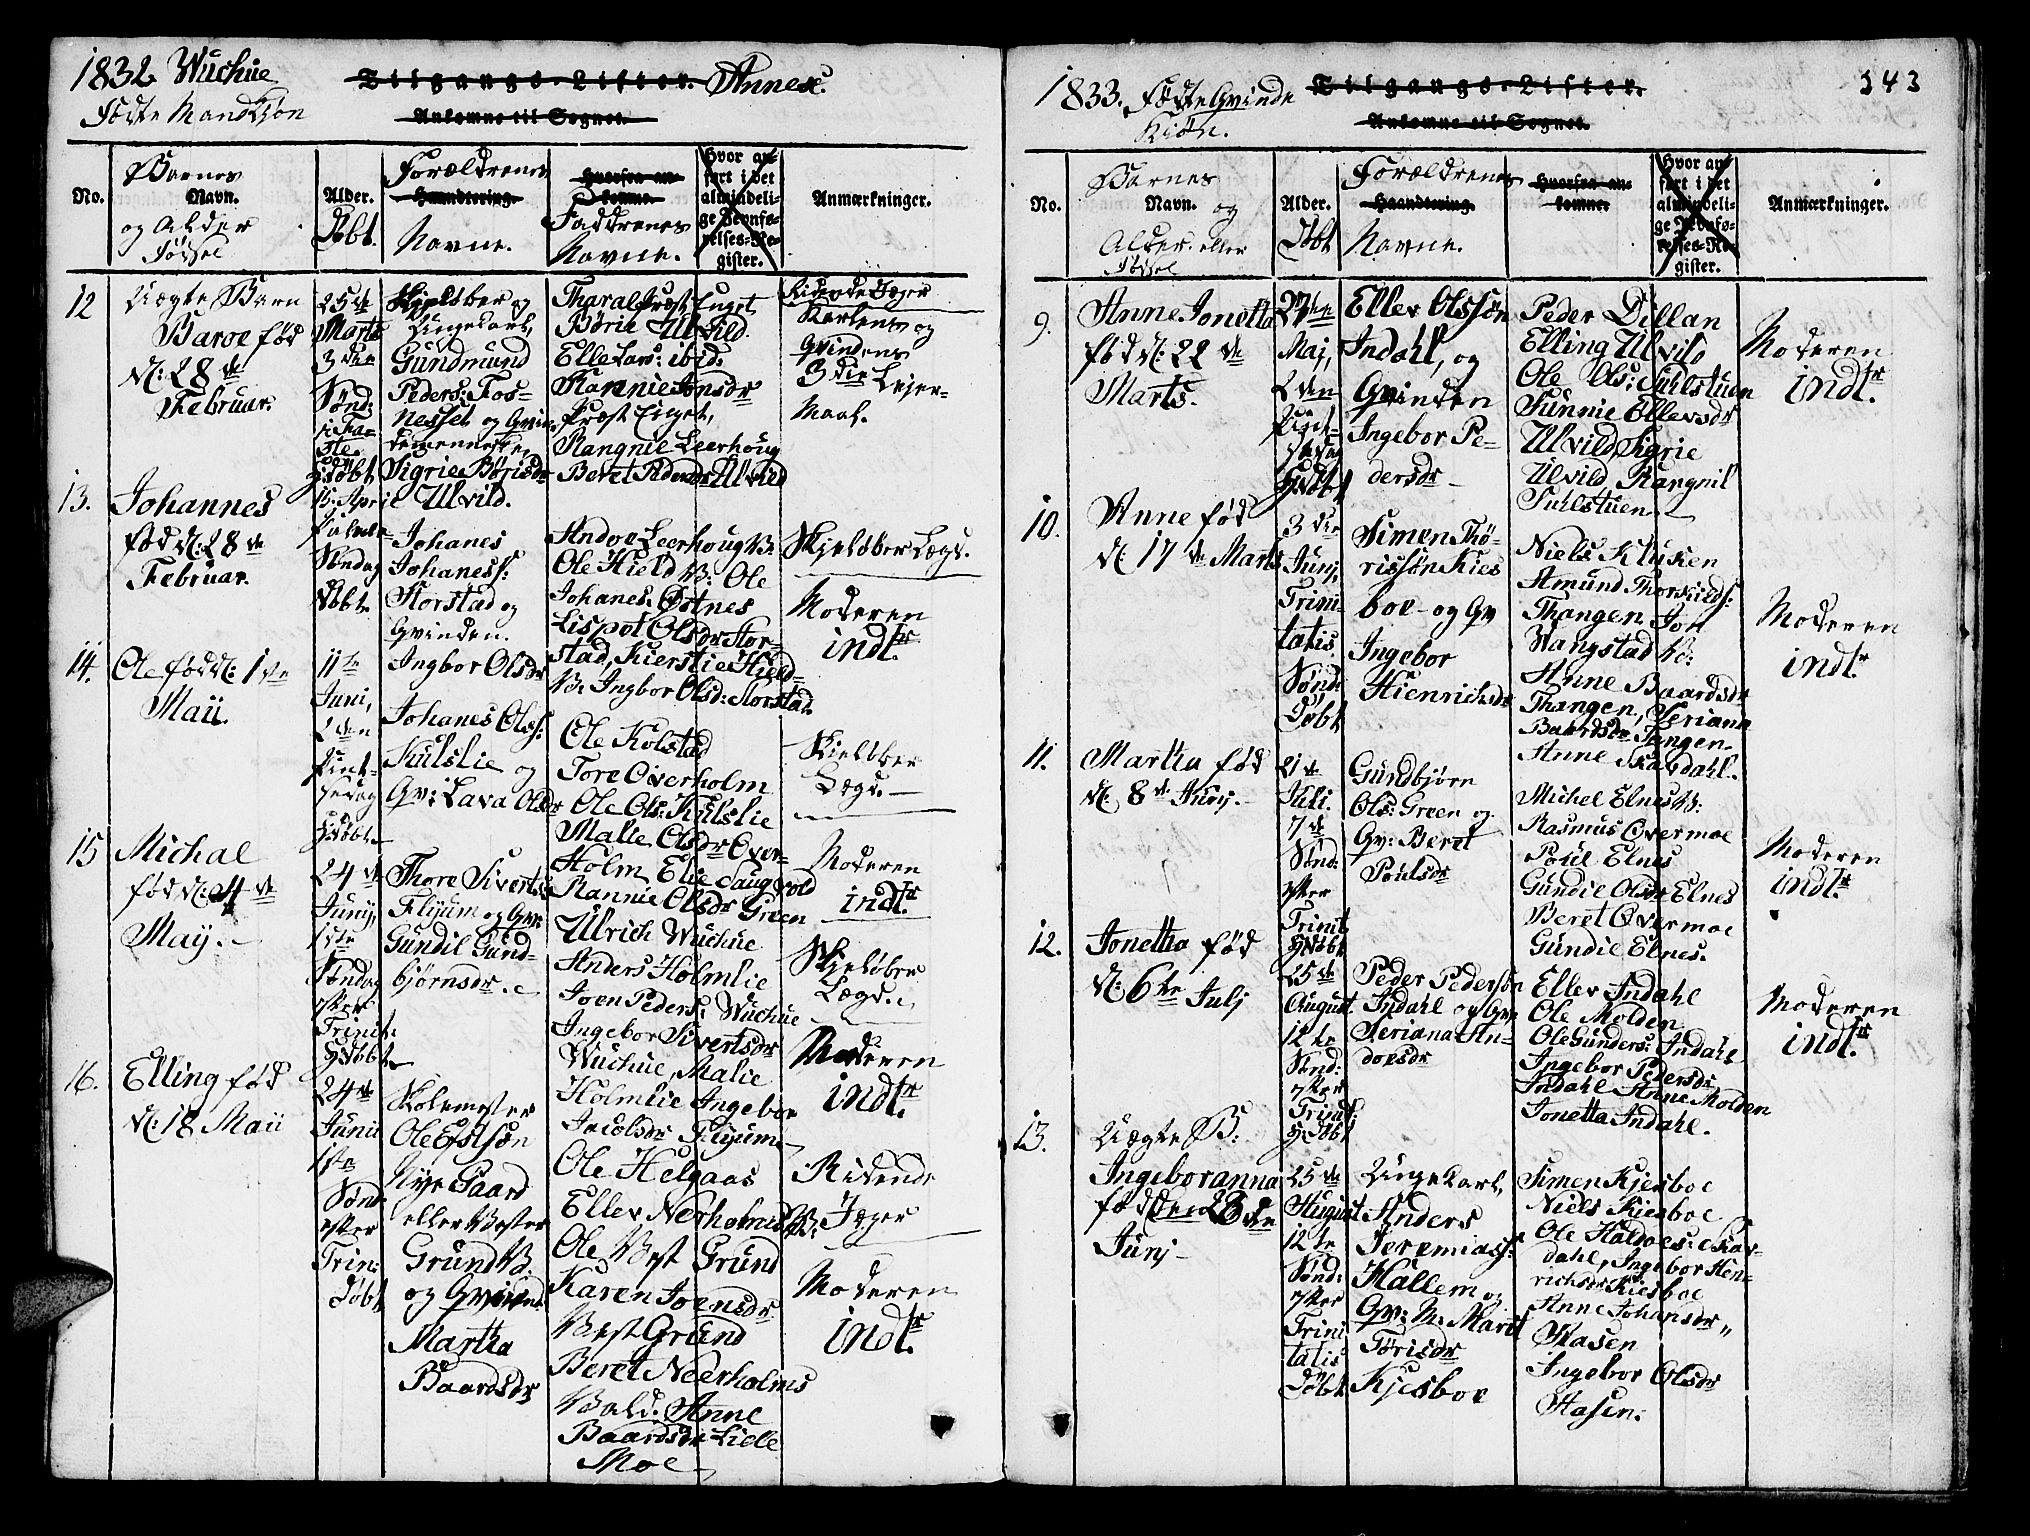 1832 Wuchue
Tilgangs-Lister. Annex.
Fødte Mandkjøn
Ankomne til Sognet.
No.
Barnets
Navn.
og Alder
Fødsel
Alder.
Døbt.
Forældrenes
Haandtering.
Navne.
Hvorfra ankomne.
Faddrenes
Navne.
Hvor anført i det almindelige Jevnførelses-Register.
Anmærkninger.
12
Uægte Barn
Baroe fød
d: 28de
Februar.
25de
Marts
3die
Sønd:
i Faste
Hjdøbt
og
Ungekarl,
Gundmund
Peders: Fosnesset og
Sigrie Børisdr
Ulvild.
Tharal Præst Enget
Børie Ulvild.
Elle Lars: ibid:
Rannie Jonsdr
Præst Enget,
Rangnil Leerhoug
Beret Pedersdr Ulvild
Ridende Jæger
Karlens og
Qvindens
3die Leiermaal.
13.
Johannes
fød d: 28de
Februar.
15. April
Palme
Søndag
Døbt
Johanes
Johaness:
Storstad og
Qvinden.
Ingbor Olsdr
Andor Leerhoug B:
Ole Hield B: Ole
Johanes: Østnes
Lispot Olsdr Storstad, Kierstie Hield
B: Ingbor Olsd: Storstad.
Skjeløber Lægd.
Moderen
indtr.
14.
Ole fød d: 1ste
Maii.
11te
Juni,
2den
Pintsedag
Hjdøbt
Johanes Olss:
Kulslie og
Qv: Lava Olsdr
Ole Kolstad
Tore Overholm
Ole Ols: Kulslie
Malle Olsdr Overholm
Elie Saugvold
Rannie Olsdr Green
Skjeløber
Lægd.
Moderen
indtr.
15
Michal
fød d: 4de
May.
24de
Juny,
1ste
Søndag
efter
Trinit:
Hjdøbt
Thore Siverts:
Flyum og Qv:
Gundil Gundbjørnsdr.
Ulrich Wuchue
Anders Holmlie
Joen Peders: Wuchue
Ingebor Sivertsdr
Wuchue, Malie
Holmlie Ingebor
Jacobsdr Flyum
Skjeløber
Lægd.
Moderen
indtr.
16.
Elling fød
d: 18 Maii
24de
Junii
1ste
Sønd
efter
Trin:
Døbt
Skolemester
Ole
Nye Gaard
eller Vester
Grund B.
og Qvinde
Martha
Baardsdr
Ole Helgaas
Ellev Nerholms B:
Ole Vest Grund
Karen Joensdr
Vest Grund
Beret Neerholms
Vald: Anne
Baardsdr Lille
Moe
Ridende
Jæger
Moderen
indtr.
1833. Fødte Qvinde
Kiøn.
Tilgangs-Lister.
Ankomne til Sognet.
343
No.
Barnes
Navn.
og
Alder. eller
Fødsel
Alder.
Døbt
Forældrenes
Haandtering.
Navne.
Hvorfra ankomne
Hvor anført i det almindelige Jevnførelses-Register.
Anmærkninger.
9.
Anne Jonetta
fød d: 22de
Marts.
27de
Maj,
2den
Pintsedag
Hjdøbt
Ellev Olssøn
Indahl, og
Qvinden
Ingebor Pedersdr
Peder Dillan
Elling Ulvild
Ole Ols: Suhlstuen
Sunnie Ellevsdr
Ulvild, Sigrie
Ulvild, Rangnil
Suhlstuen
Moderen
indtr.
10.
Anne fød
d: 17de Marts
3die
Junj,
Trinitatis
Sønd:
Døbt
Simen Thørissøn Kiesboe og Qv
Ingebor
Hienrichsdr
Niels Kluken
Amund Thorkields:
Thangen Joh
Wangstad
Anne Baardsdr
Thangen, Seriana
Baardsdr Tangen.
Anne Skavdahl.
Moderen
indtr.
11.
Martha fød
d: 8de Junj.
21de
Juli.
7de
Sønd:
efter
Trinit
Hjdøbt
Gundbjørn
Ols: Green og
Qv: Beret
Poulsdr
Michel Elnes B:
Rasmus Overmoe
Poul Elnes
Gundil Olsdr Elnes
Beret Overmoe
Gundil Elnes.
Moderen
indtr.
12.
Jonetha fød
d: 6te Julj
25de
August
12te
Sønd:
efter
Trinit:
Hjdøbt
Peder Pedersøn
Indahl og Qv:
Seriana Andorsdr
Ellev Indahl
Ole Molden
Ole Gunders: Indahl
Ingebor Pedersdr
Indahl Anne Molden
Jonetta Indahl.
Moderen
indtr.
13.
Uægte B:
Ingeboranna
fød den 28de
Junj
25de
August
12te
Sønd:
efter
Trinitatis
Døbt
Ungekarl,
Anders
Jeremiass:
Hallem og
Qv: M: Marit
Tørisdr
Kjesboe
Simen Kjesboe
Niels Kiesboe
Ole Haldoes: Skavdahl, Ingebor Henrichsdr Kiesboe
Anne Johansdr
Stasen
Ingebor Olsdr
Stasen.